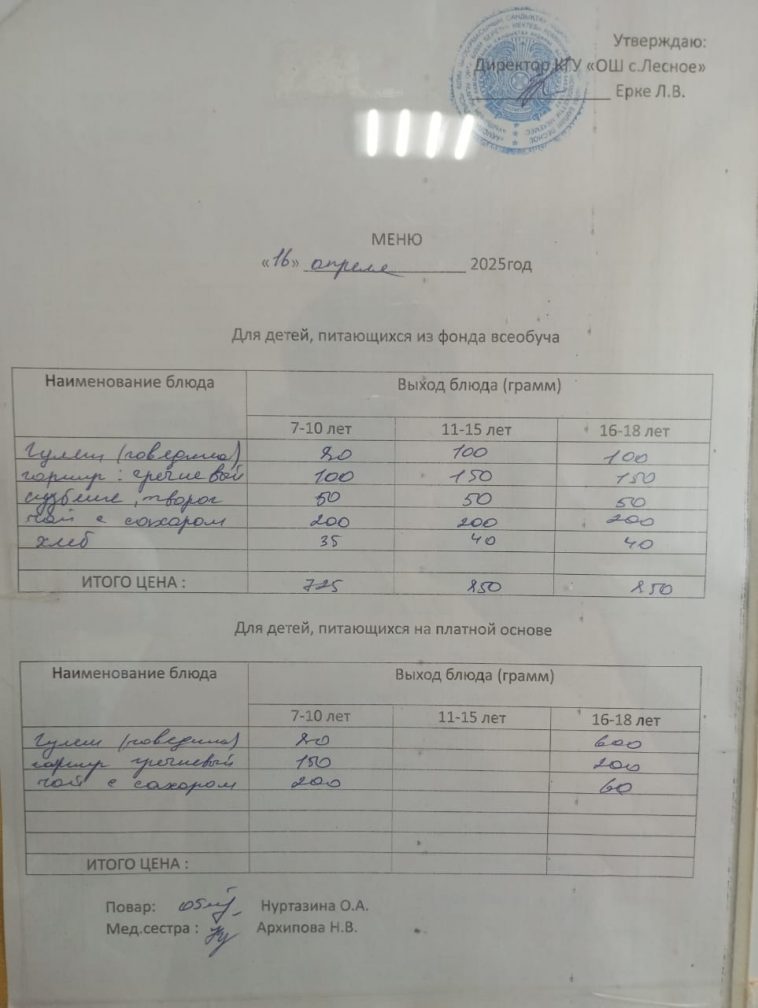 Утверждаю:
Директор КГУ «ОШ с.Лесное»
Ерке Л.В.
МЕНЮ
«16» апреля 2025год
Для детей, питающихся из фонда всеобуча
Наименование блюда Выход блюда (грамм)
7-10 лет 11-15 лет 16-18 лет
Гуляш (говядина) 80 100 100
гарнир: гречневый 100 150 150
творог 50 50 50
чай с сахаром 200 200 200
хлеб 35 40 40
ИТОГО ЦЕНА : 725 850 850
Для детей, питающихся на платной основе
Наименование блюда Выход блюда (грамм)
7-10 лет 11-15 лет 16-18 лет
Гуляш (говядина) 80 600
гарнир гречневый 150 200
чай с сахаром 200 60
ИТОГО ЦЕНА :
Повар: Нуртазина О.А.
Мед.сестра : Архипова Н.В.